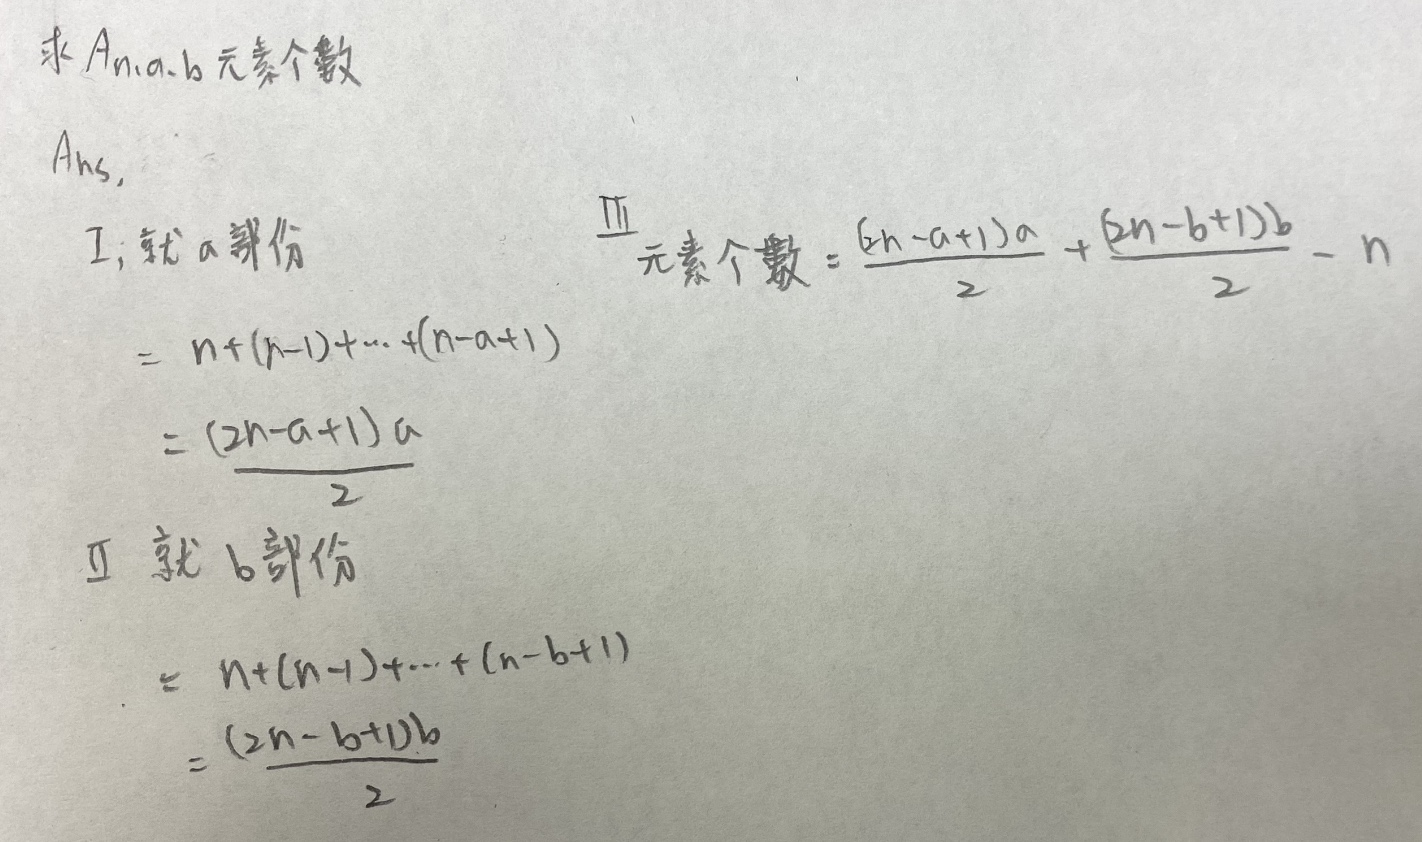 求 An.a.b 元素个數
Ans,
I; 就 a 部份
= n+(n-1)+…+(n-a+1)
= (2n-a+1)a / 2
II 就 b 部份
= n+(n-1)+…+(n-b+1)
= (2n-b+1)b / 2
III
元素个數 = (2n-a+1)a / 2 + (2n-b+1)b / 2 - n